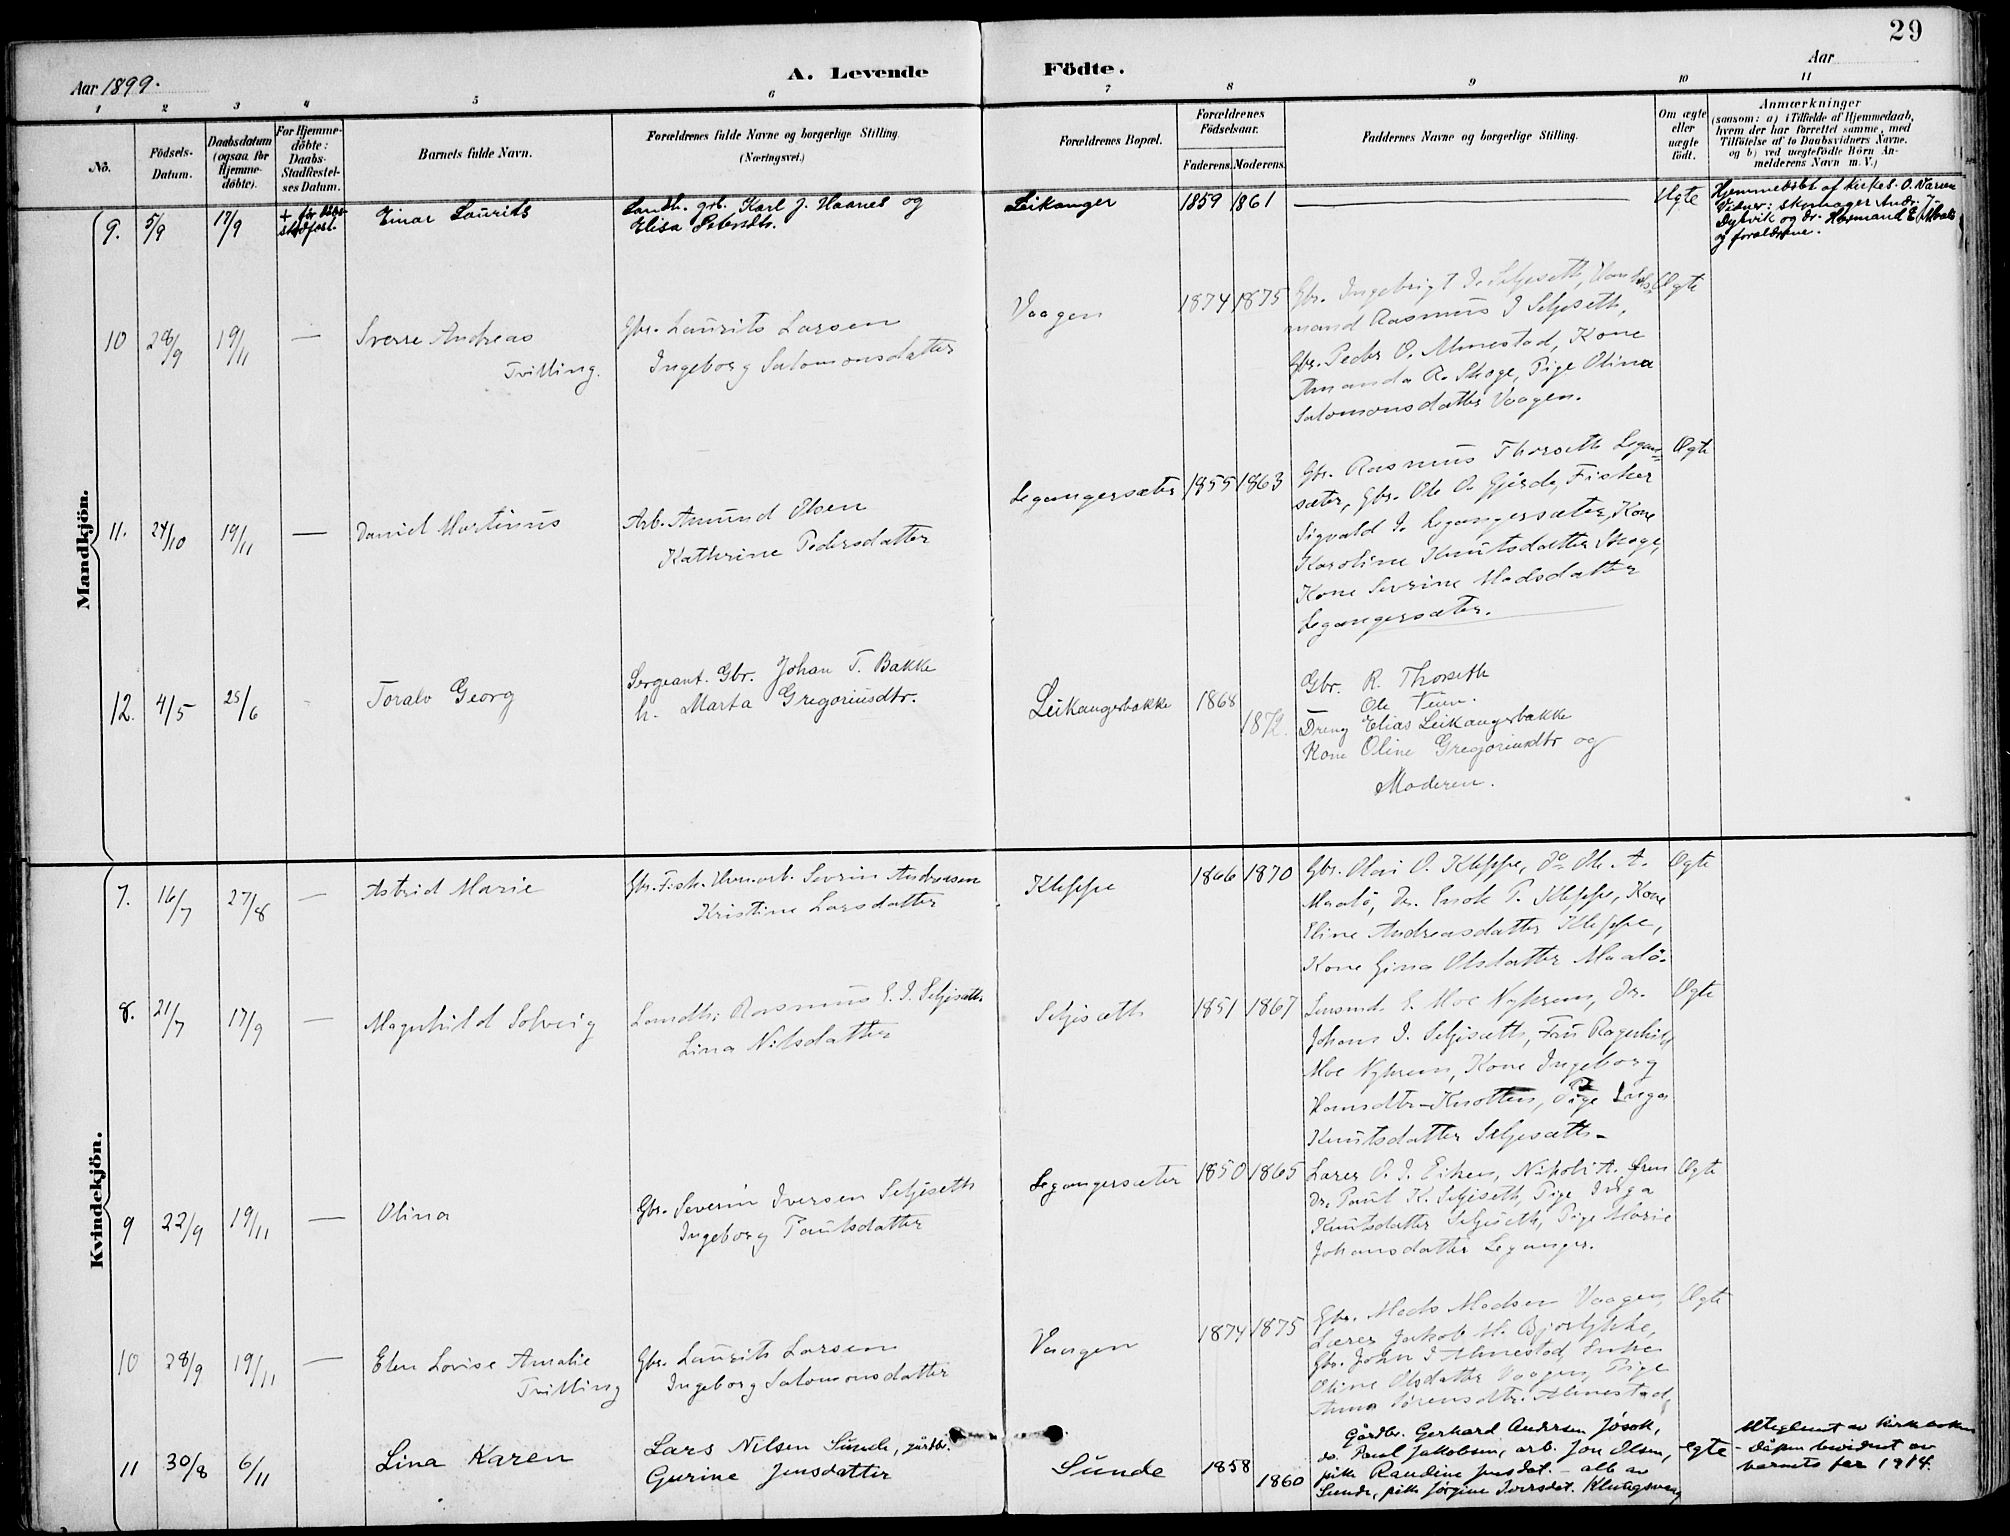 29
Aar 1899.
A. Levende
Födte.
Aar
1 2 3 4 5 6 7 8 9 10 11
No.
Födsels-
Datum.
Daabsdatum
(ogsaa for
Hjemme-
döbte).
For Hjemme-
döbte:
Daabs-
Stadfæstel-
ses Datum.
Barnets fulde Navn.
Forældrenes fulde Navne og borgerlige Stilling.
(Næringsvei.)
Forældrenes Bopæl.
Forældrenes
Födselsaar.
Faderens. Moderens.
Faddernes Navne og borgerlige Stilling.
Om ægte
eller
uægte
födt.
Anmærkninger
(saasom: a) i Tilfælde af Hjemmedaab,
hvem der har forrettet samme, med
Tilföielse af to Daabsvidners Navne,
og b) ved uægtefödte Börn An-
melderens Navn m. V.)
Mandkjön.
9. 5/9 17/9
Einar Laurits
Landh. gbr. Karl J. Haanes og
Elisa
Leikanger
1859 1861
Ægte
Hjemmedöbt af kirkes. O.
Vidner: skomager Andr. J.
Dybvik og dr.
og forældrene.
10 28/9 19/11 —
Sverre Andreas
Tvilling.
Gbr. Laurits Larsen
Ingeborg Salomonsdatter
Vaagen
1874 1875
Gbr. Ingebrigt I. Seljeseth,
mand Rasmus I Seljeseth,
Gbr. Peder O. Almestad, Kone
Amanda R. Skoge, Pige Olina
Salomonsdatter Vaagen.
Ægte
11. 24/10 19/11 —
Daniel Martinus
Arb. Amund Olsen
Kathrine Pedersdatter
Legangersæter
1855 1863
Gbr. Rasmus Thorseth Legan-
sæter, Gbr. Ole O. Gjerde, Fisker
Sigvald I. Legangersæter, Kone
Karoline Knutsdatter Skoge,
Kone Sevrine Madsdatter
Legangersæter.
Ægte
12. 4/5 25/6
Toralv Georg
Sergeant. Gbr. Johan T. Bakke
h. Marta Gregoriusdtr.
Leikangerbakke
1868
1872.
Gbr. R. Thorseth
Ole
Dreng Elias Leikangerbakke
Kone Oline Gregoriusdtr og
Moderen.
Kvindekjön.
7. 16/7 27/8 —
Astrid Marie
Gbr. Fisk. Sevrin Andersen
Kristine Larsdatter
Kleppe
1866 1870
Gbr. Olai O. Kleppe, do Ole A.
Maalö, Dr. Enok P. Kleppe, Kone
Eline Andreasdatter Kleppe,
Kone Gina Olsdatter Maalö.
Ægte
8. 21/7 17/9 —
Magnhild Solveig
Landh. Rasmus E. I. Seljesæth
Lina Nilsdatter
Seljesæth
1851 1867
E. Moe Nykrem, Dr.
Johans I. Seljesæth, Fru Ragnhild
Moe Nykrem, Kone Ingeborg
Hansdtr Knotten, Pige Inga
Knutsdatter Seljesæth
Ægte
9 22/9 19/11 —
Olina
Gbr. Severin Iversen Seljeseth
Ingeborg Paulsdatter
Legangersæter
1850 1865
Lærer O. I. Eiken, Nikolai A.
Dr. Paul K. Seljeseth, Pige Inga
Knutsdatter Seljeseth, Pige Marie
Johansdatter Leganger.
Ægte
10 28/9 19/11 —
Elen Lovise Amalie
Tvilling
Gbr. Laurits Larsen
Ingeborg Salomonsdatter
Vaagen
1874 1875
Gbr. Mads Madsen Vaagen,
Lærer Jakob M. Bjorlykke,
Gbr. John I Almestad, Enke
Oline Olsdatter Vaagen, Pige
Anna Sörensdtr. Almestad.
Ægte
11 30/8 6/11
Lina Karen
Lars Nilsen Sunde, gårdbr.
Gurine Jensdatter
Sunde
1858
1860
Gårdbr. Gerhard Andersen Jösok,
do. Paul Jakobsen, arb. Jon Olsen,
pike Raudine Jensdat. – alle av
Sunde, pike Jörgine Iversdat.
egte
Uteglemt av kirkeboken
– Dåpen bevidnet av
barnets far 1914.